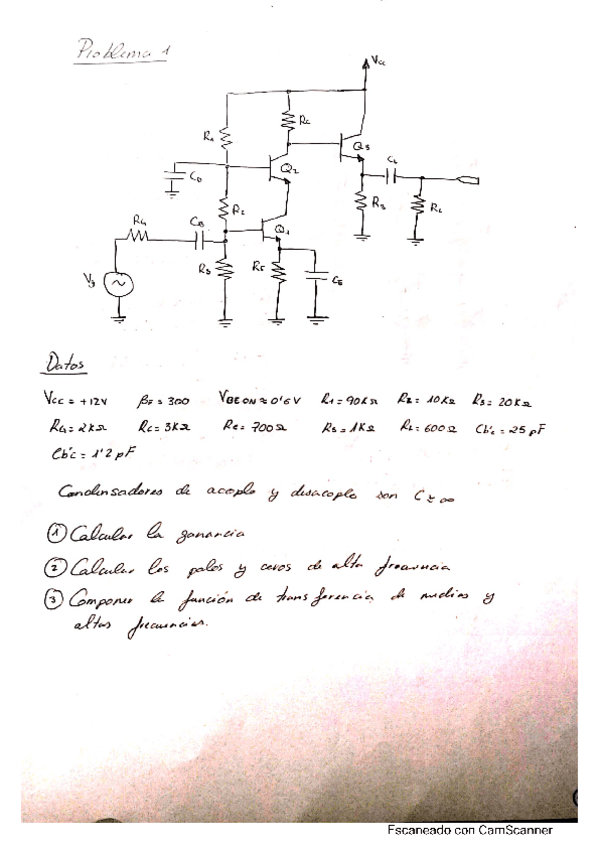 Problema 1
Vcc
R1
Rc
Q3
CD
Q2
CL
R2
RG
CB
Q1
R3
RE
CE
Vg
~
RL
Datos
Vcc = +12V βF = 300 VBEON ≈ 0'6V R1 = 90KΩ R2 = 10KΩ R3 = 20KΩ
RG = 2KΩ Rc = 3KΩ RE = 700Ω RS = 1KΩ RL = 600Ω Cb'e = 25 pF
Cb'c = 1'2 pF
Condensadores de acoplo y desacoplo son C ≈ ∞
① Calcular la ganancia
② Calcular los polos y ceros de alta frecuencia
③ Componer la función de transferencia de medias y
altas frecuencias.
Escaneado con CamScanner